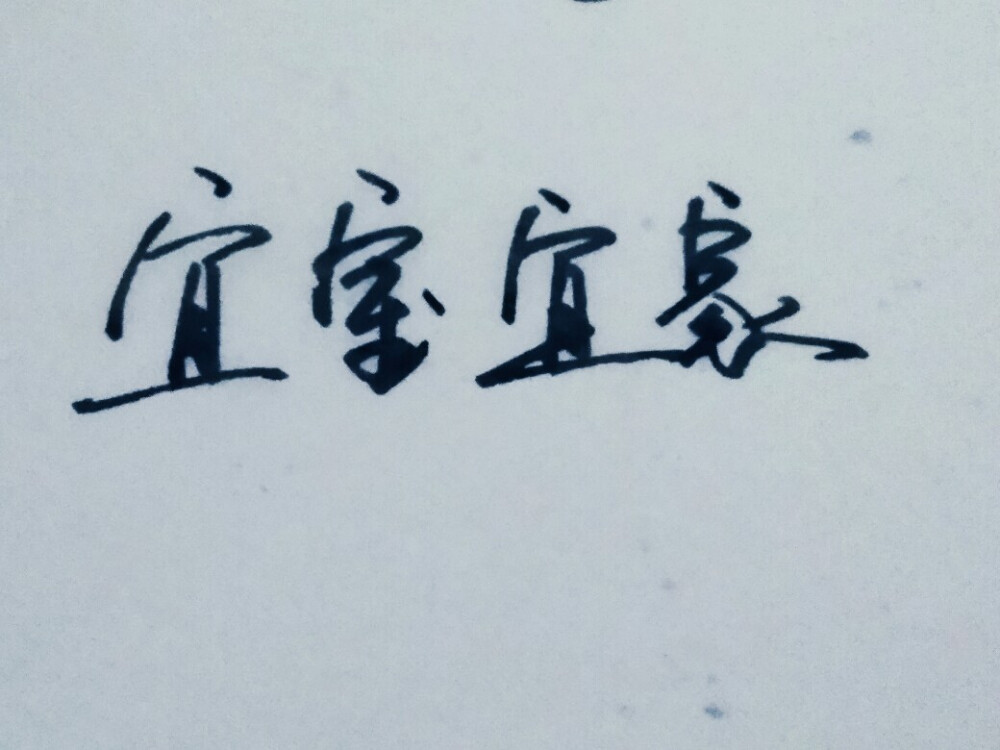 宜室宜家